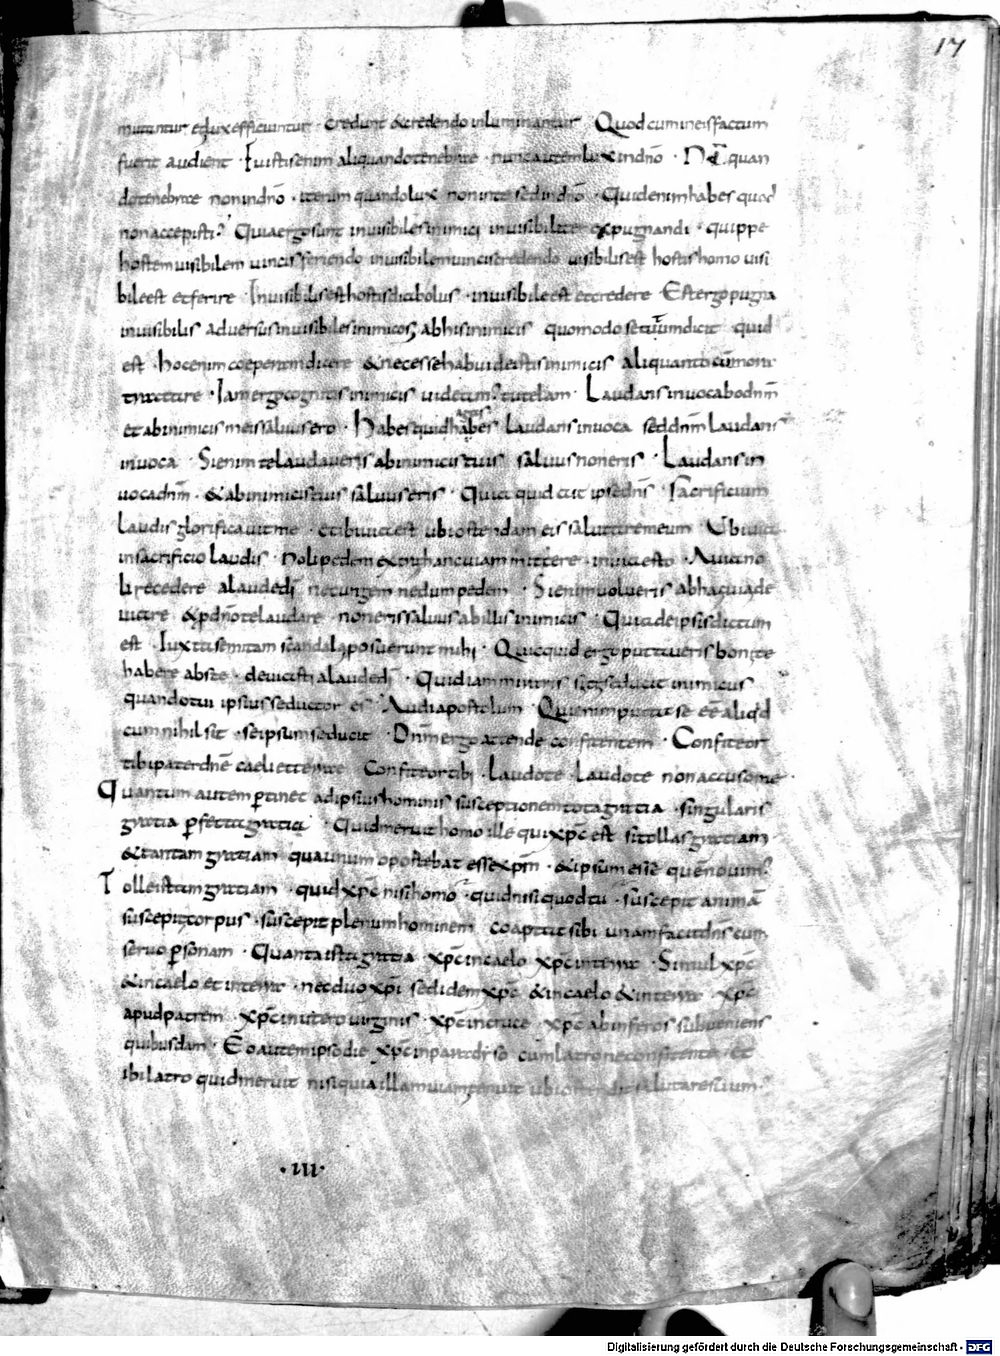 17
mutantur et lux efficiuntur · credunt & credendo inluminantur Quod cum in eis factum
fuerit audient · Fuistis enim aliquando tenebrae · nunc autem lux in dno · quan
do tenebrae non in dno · iterum quando lux non in te sed in dno · Quid enim habes quod
non accepisti? Quia ergo sunt invisibiles inimici invisibiliter expugnandi · quippe
hostem visibilem vincis feriendo invisibilem vincis credendo visibilis est hostis homo visi
bile est et ferire Invisibilis est hostis diabolus · invisibile est et credere Est ergo pugna
invisibilis adversus invisibiles inimicos, ab his inimicis quomodo se tutum dicit quid
est · hoc enim coeperam dicere & necesse habui de istis inimicis aliquanto
tractare · Iam ergo cognitis inimicis videamus tutelam · Laudans invocabo dnm
et ab inimicis meis salvus ero · Habes quid agas laudans invoca sed dnm laudans
invoca · Si enim te laudaveris ab inimicis tuis salvus non eris · Laudans in
voca dnm · & ab inimicis tuis salvus eris · Quia quid ait ipse dns · Sacrificium
laudis glorificavit me · et ibi via est ubi ostendam eis salutarem meum · Ubi via
in sacrificio laudis · Noli pedem extra hanc viam mittere · in via esto · A via no
li recedere a laude di nec ungem nedum pedem · Si enim volueris ab hac via de
viare & p dno te laudare · non eris salvus ab illis inimicis · Quia de ipsis dictum
est · Iuxta semitam scandala posuerunt mihi · Quicquid ergo putaveris boni te
habere abs te · deviasti a laude di · Quid iam miraris si te seducit inimicus
quando tu ipsius seductor es · Audi apostolum · Qui enim putat se ee aliqd
cum nihil sit · se ipsum seducit · Dnm ergo attende confitentem · Confiteor
tibi pater dne caeli et terrae Confiteor tibi · Laudo te · Laudo te non accuso me ·
Quantum autem ptinet ad ipsius hominis susceptionem tota gratia · singularis
gratia pfecta gratia · Quid meruit homo ille qui xpc est si tollas gratiam
& tantam gratiam qua unum oportebat esse xpm · & ipsum esse quem novimus?
Tolle istam gratiam · quid xpc nisi homo · quid nisi quod tu · suscepit animā
suscepit corpus · suscepit plenum hominem coaptat sibi unam facit dns cum
servo psonam · Quanta ista gratia · xpc in caelo xpc in terra · Simul xpc
& in caelo et in terra · nec duo xpi sed idem xpc & in caelo & in terra · xpc
apud patrem · xpc in utero virginis · xpc in cruce · xpc ab inferos subveniens
quibusdam · Eo autem ipso die xpc in paradiso cum latrone confitente · Et
ibi latro quid meruit nisi quia illam viam tenuit ubi ostendit salutare suum?
· III ·
Digitalisierung gefördert durch die Deutsche Forschungsgemeinschaft - DFG